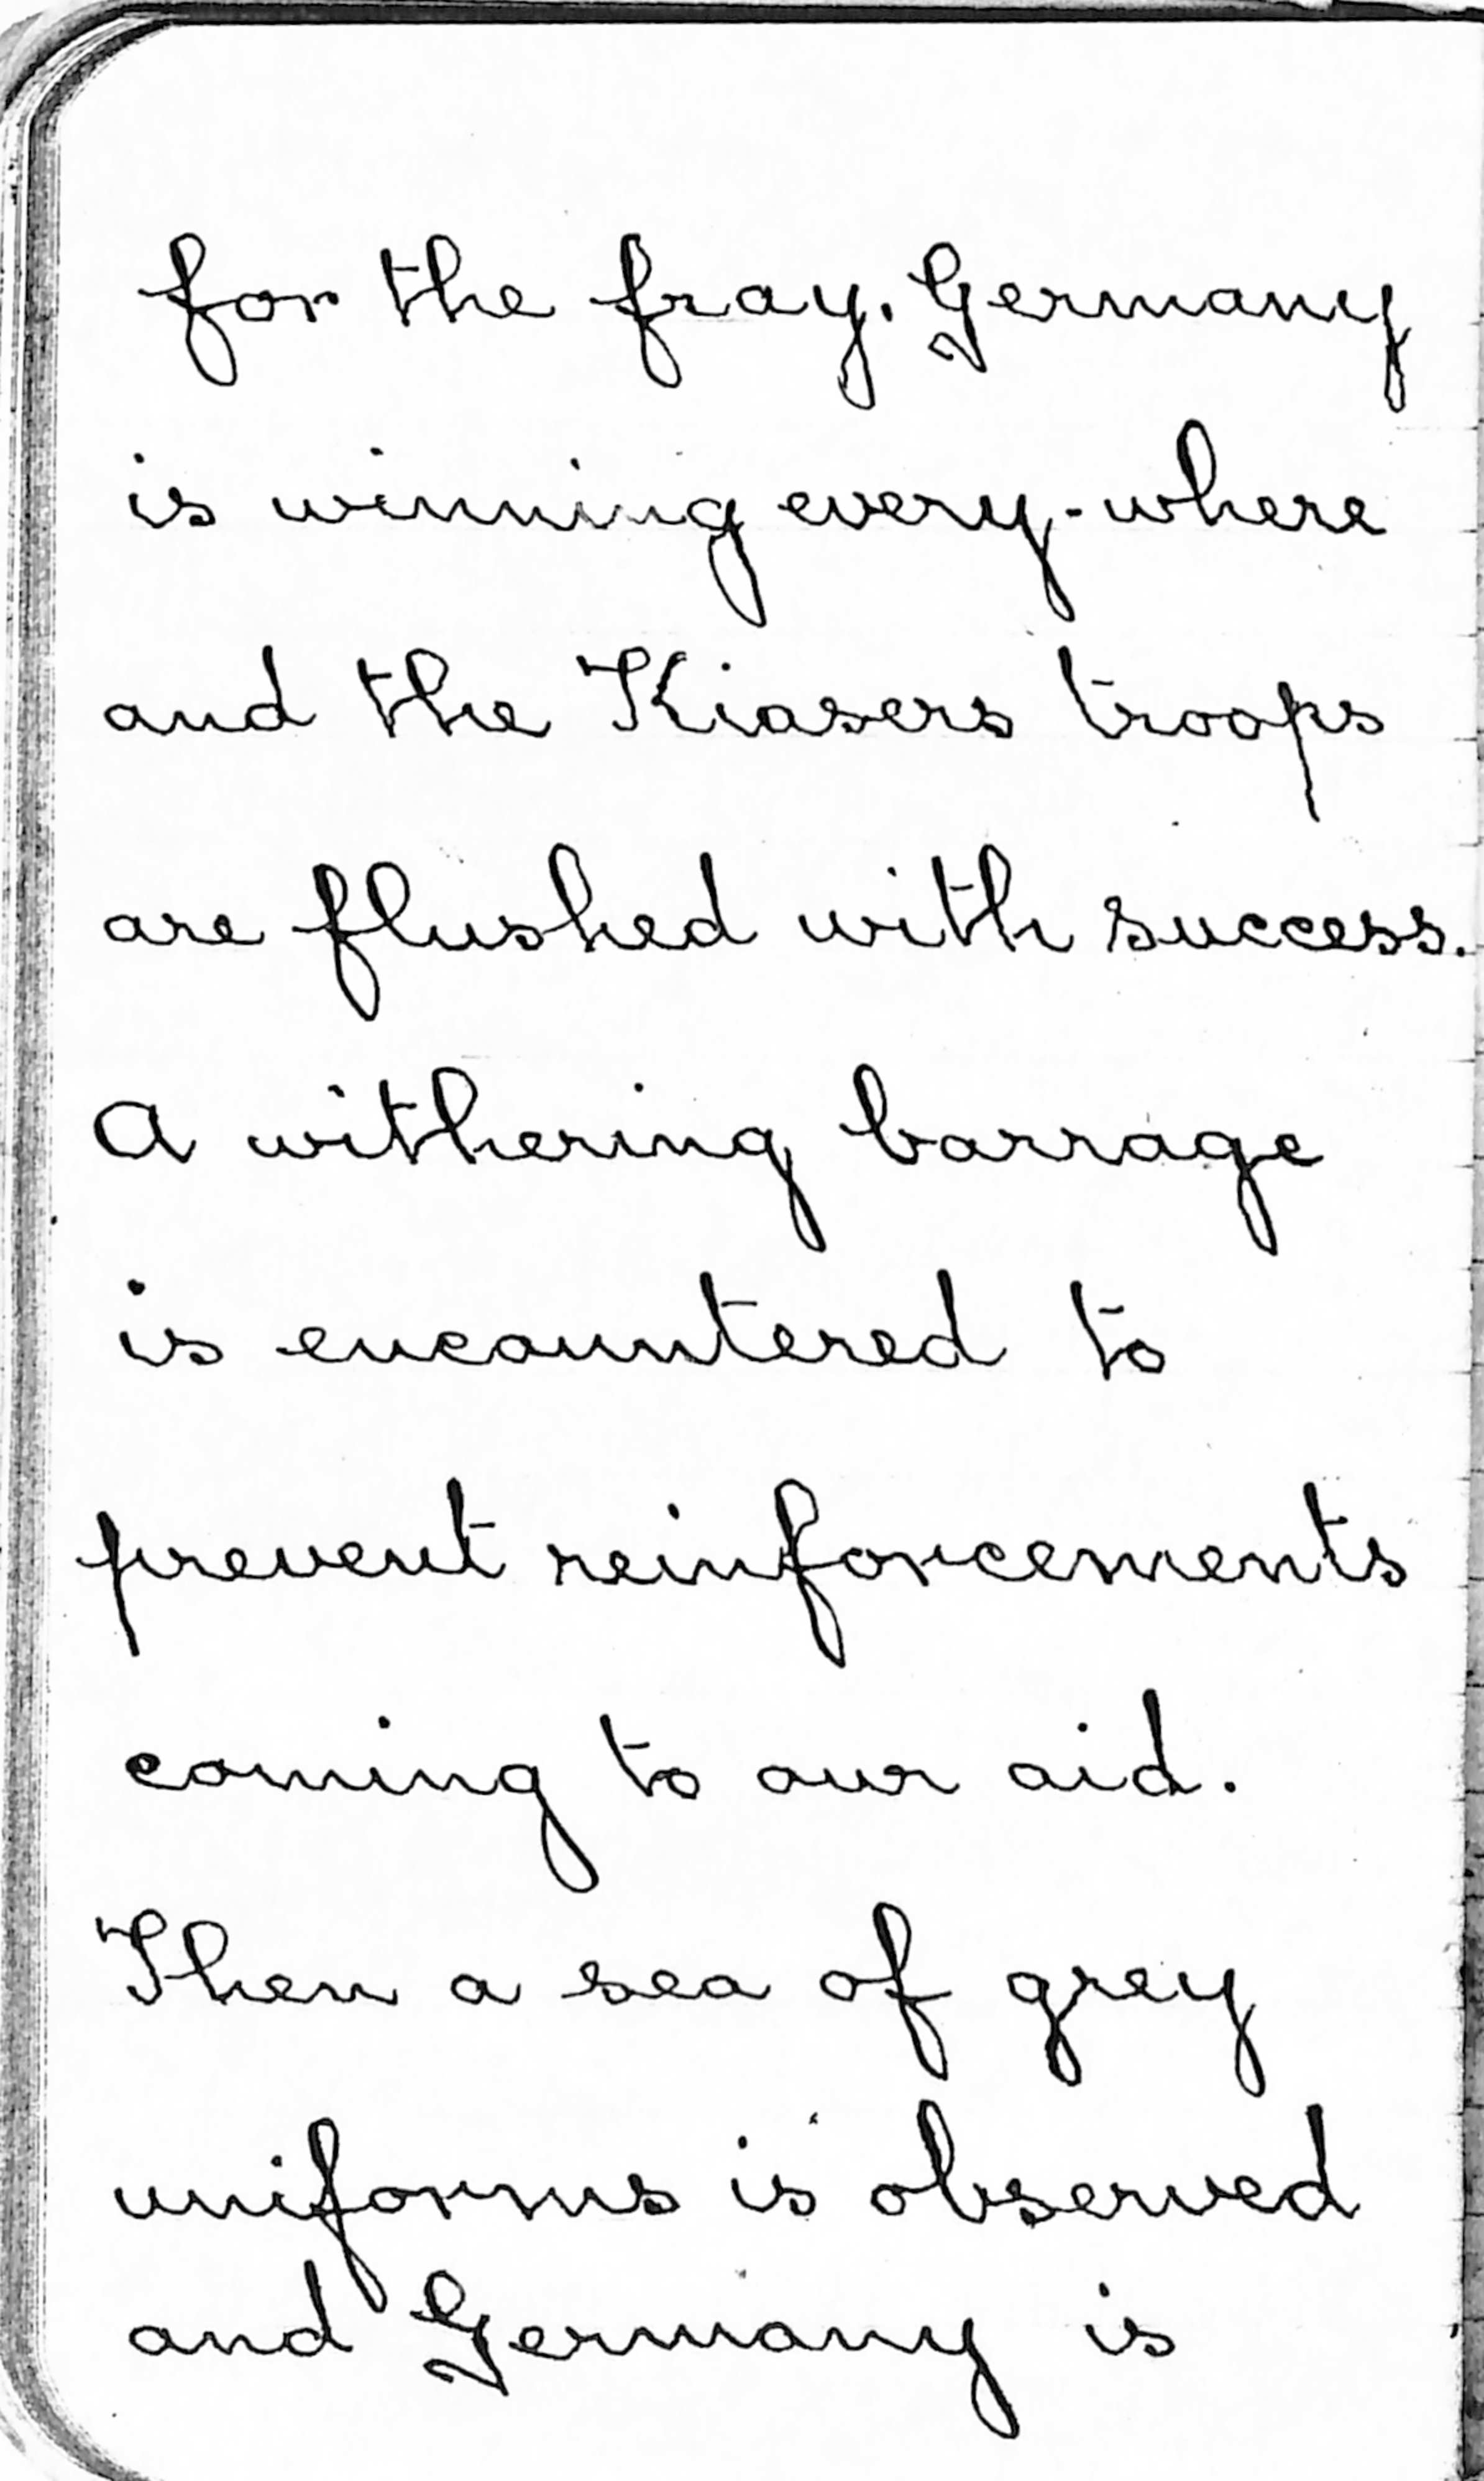 for the fray. Germany
is winning every-where
and the Kiasers troops
are flushed with success.
A withering barrage
is encountered to
prevent reinforcements
coming to our aid.
Then a sea of grey
uniforms is observed
and Germany is